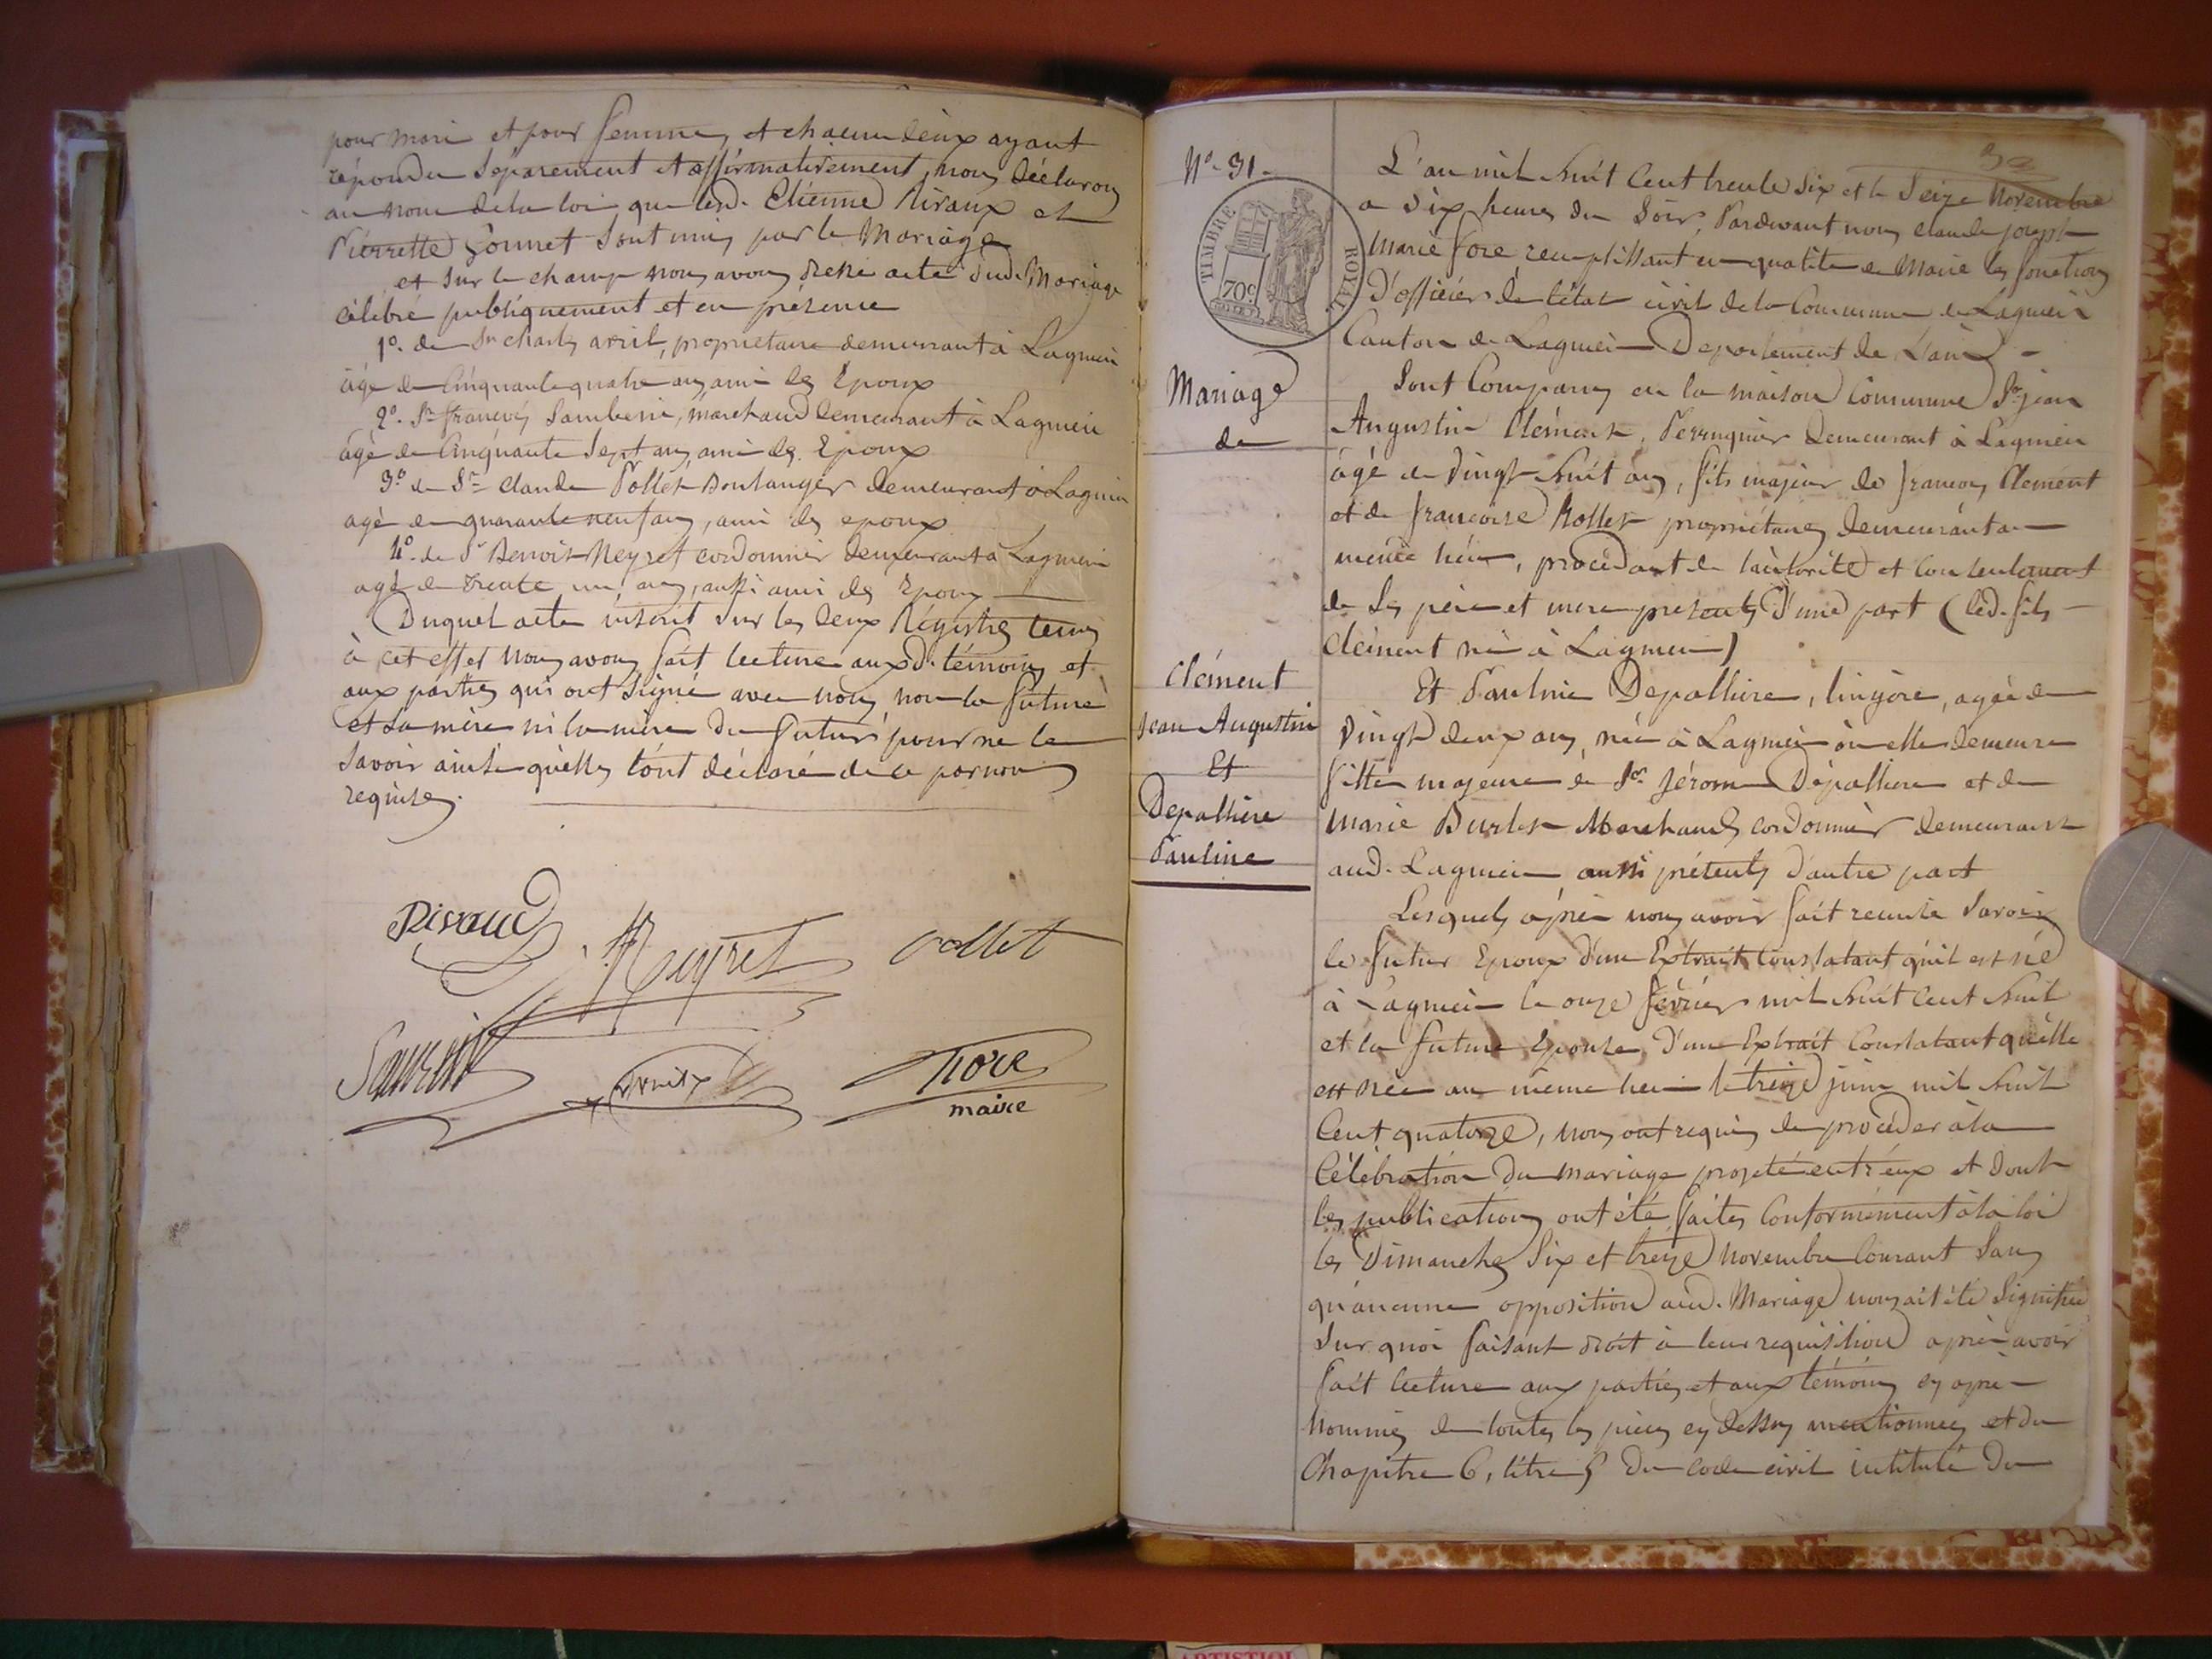 pour mari et pour femme, et chacun d'eux ayant
répondu séparement et affirmativement, nous déclarons
au nom de la loi que lesd. Etienne Riraux et
Pierrette Gonnet sont unis par le Mariage
et sur le champ nous avons dressé acte dud. Mariage
célébré publiquement et en présence
1º. de Sr charles avril, propriétaire demeurant à Lagnieu
âgé de Cinquante quatre ans ami des Epoux
2º. Sr françois Sambein, marchand demeurant à Lagnieu
âgé de Cinquante Sept ans ami des Epoux
3º de Sr claude Vollet Boulanger demeurant à Lagnieu
agé de quarante neuf ans, ami des epoux
4º. de Sr Benoit Neyret cordonnier demeurant à Lagnieu
agé de trente un ans, aussi ami des Epoux
Duquel acte inscrit sur les deux Régistres tenus
à cet effet Nous avons fait lecture auxd. témoins et
aux parties qui ont signé avec nous, non la future
et sa mère ni la mère du futur pour ne le
savoir ainsi qu'elles l'ont déclaré de ce par nous
requises.
Neyret vollet
maire
Nº. 31.
TIMBRE ROYAL
70c
Mariage
de
Clément
Jean Augustin
Et
Depallière
Pauline
32
L'an mil huit Cent trente Six et le Seize Novembre
a Six heures du Soir, Pardevant nous claude joseph
marie fore remplissant en qualité de Maire les fonctions
D'officier de l'état civil de la Commune de Lagnieu
Canton de Lagnieu Département de L'ain
Sont Comparus en la maison Commune Sr. jean
Augustin Clément, Perruquier demeurant à Lagnieu
âgé de vingt huit ans, fils majeur de françois Clément
et de françoise Rollet propriétaires demeurant au
même lieu, procédant de l'autorité et Consentement
de Ses père et mere presents D'une part (led. fils
Clément né à Lagnieu)
Et Pauline Depallière, lingère, agée de
vingt deux ans, née à Lagnieu où elle demeure
fille majeure de Sr. Jérome Dépallière et de
Marie Burlet Marchands cordonnier demeurant
aud. Lagnieu aussi présents d'autre part
Lesquels après nous avoir fait remise Savoir
le futur Epoux d'un Extrait Constatant qu'il est né
à Lagnieu le onze février mil huit Cent huit
et la future Epouse, D'un Extrait Constatant qu'elle
est née au même lieu le treize juin mil huit
Cent quatorze, nous ont requis de procéder à la
Célébration du mariage projeté entr'eux et dont
les publications ont été faites Conformément à la loi
les Dimanches Six et treize Novembre Courant Sans
qu'aucune opposition aud. Mariage nous ait été Signifiée
Sur quoi faisant droit à leur requisition après avoir
fait lecture aux parties et aux témoins cy après
Nommés de toutes les pièces cy dessus mentionnées et du
Chapitre 6, titre 5 du code civil intitulé Du